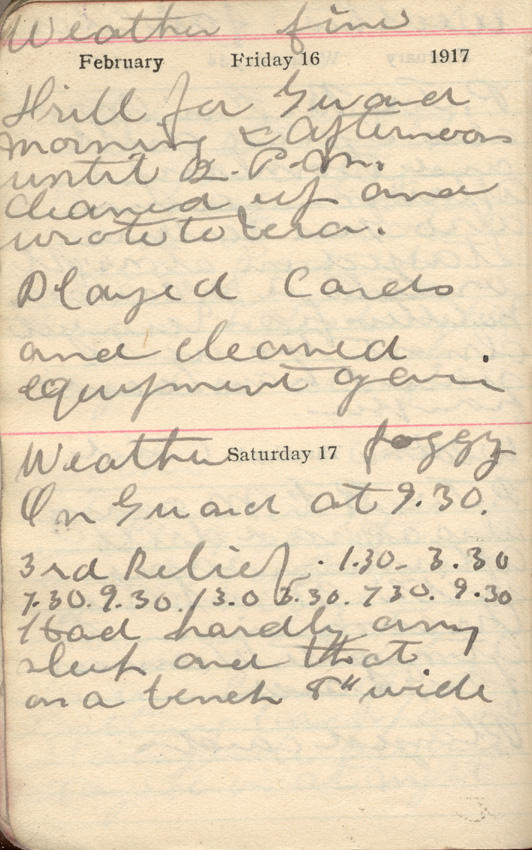 Weather fine
February Friday 16 1917
Drill for Guard
morning & afternoon
until 2. P.M.
cleaned up and
wrote to Vera.
Played Cards
and cleaned
equipment again
Weather Saturday 17 foggy
On Guard at 9.30.
3rd Relief. 1.30- 3.30
7.30. 9.30. 13.0 3.30. 730. 9.30
Had hardly any
sleep and that
on a bench 8" wide